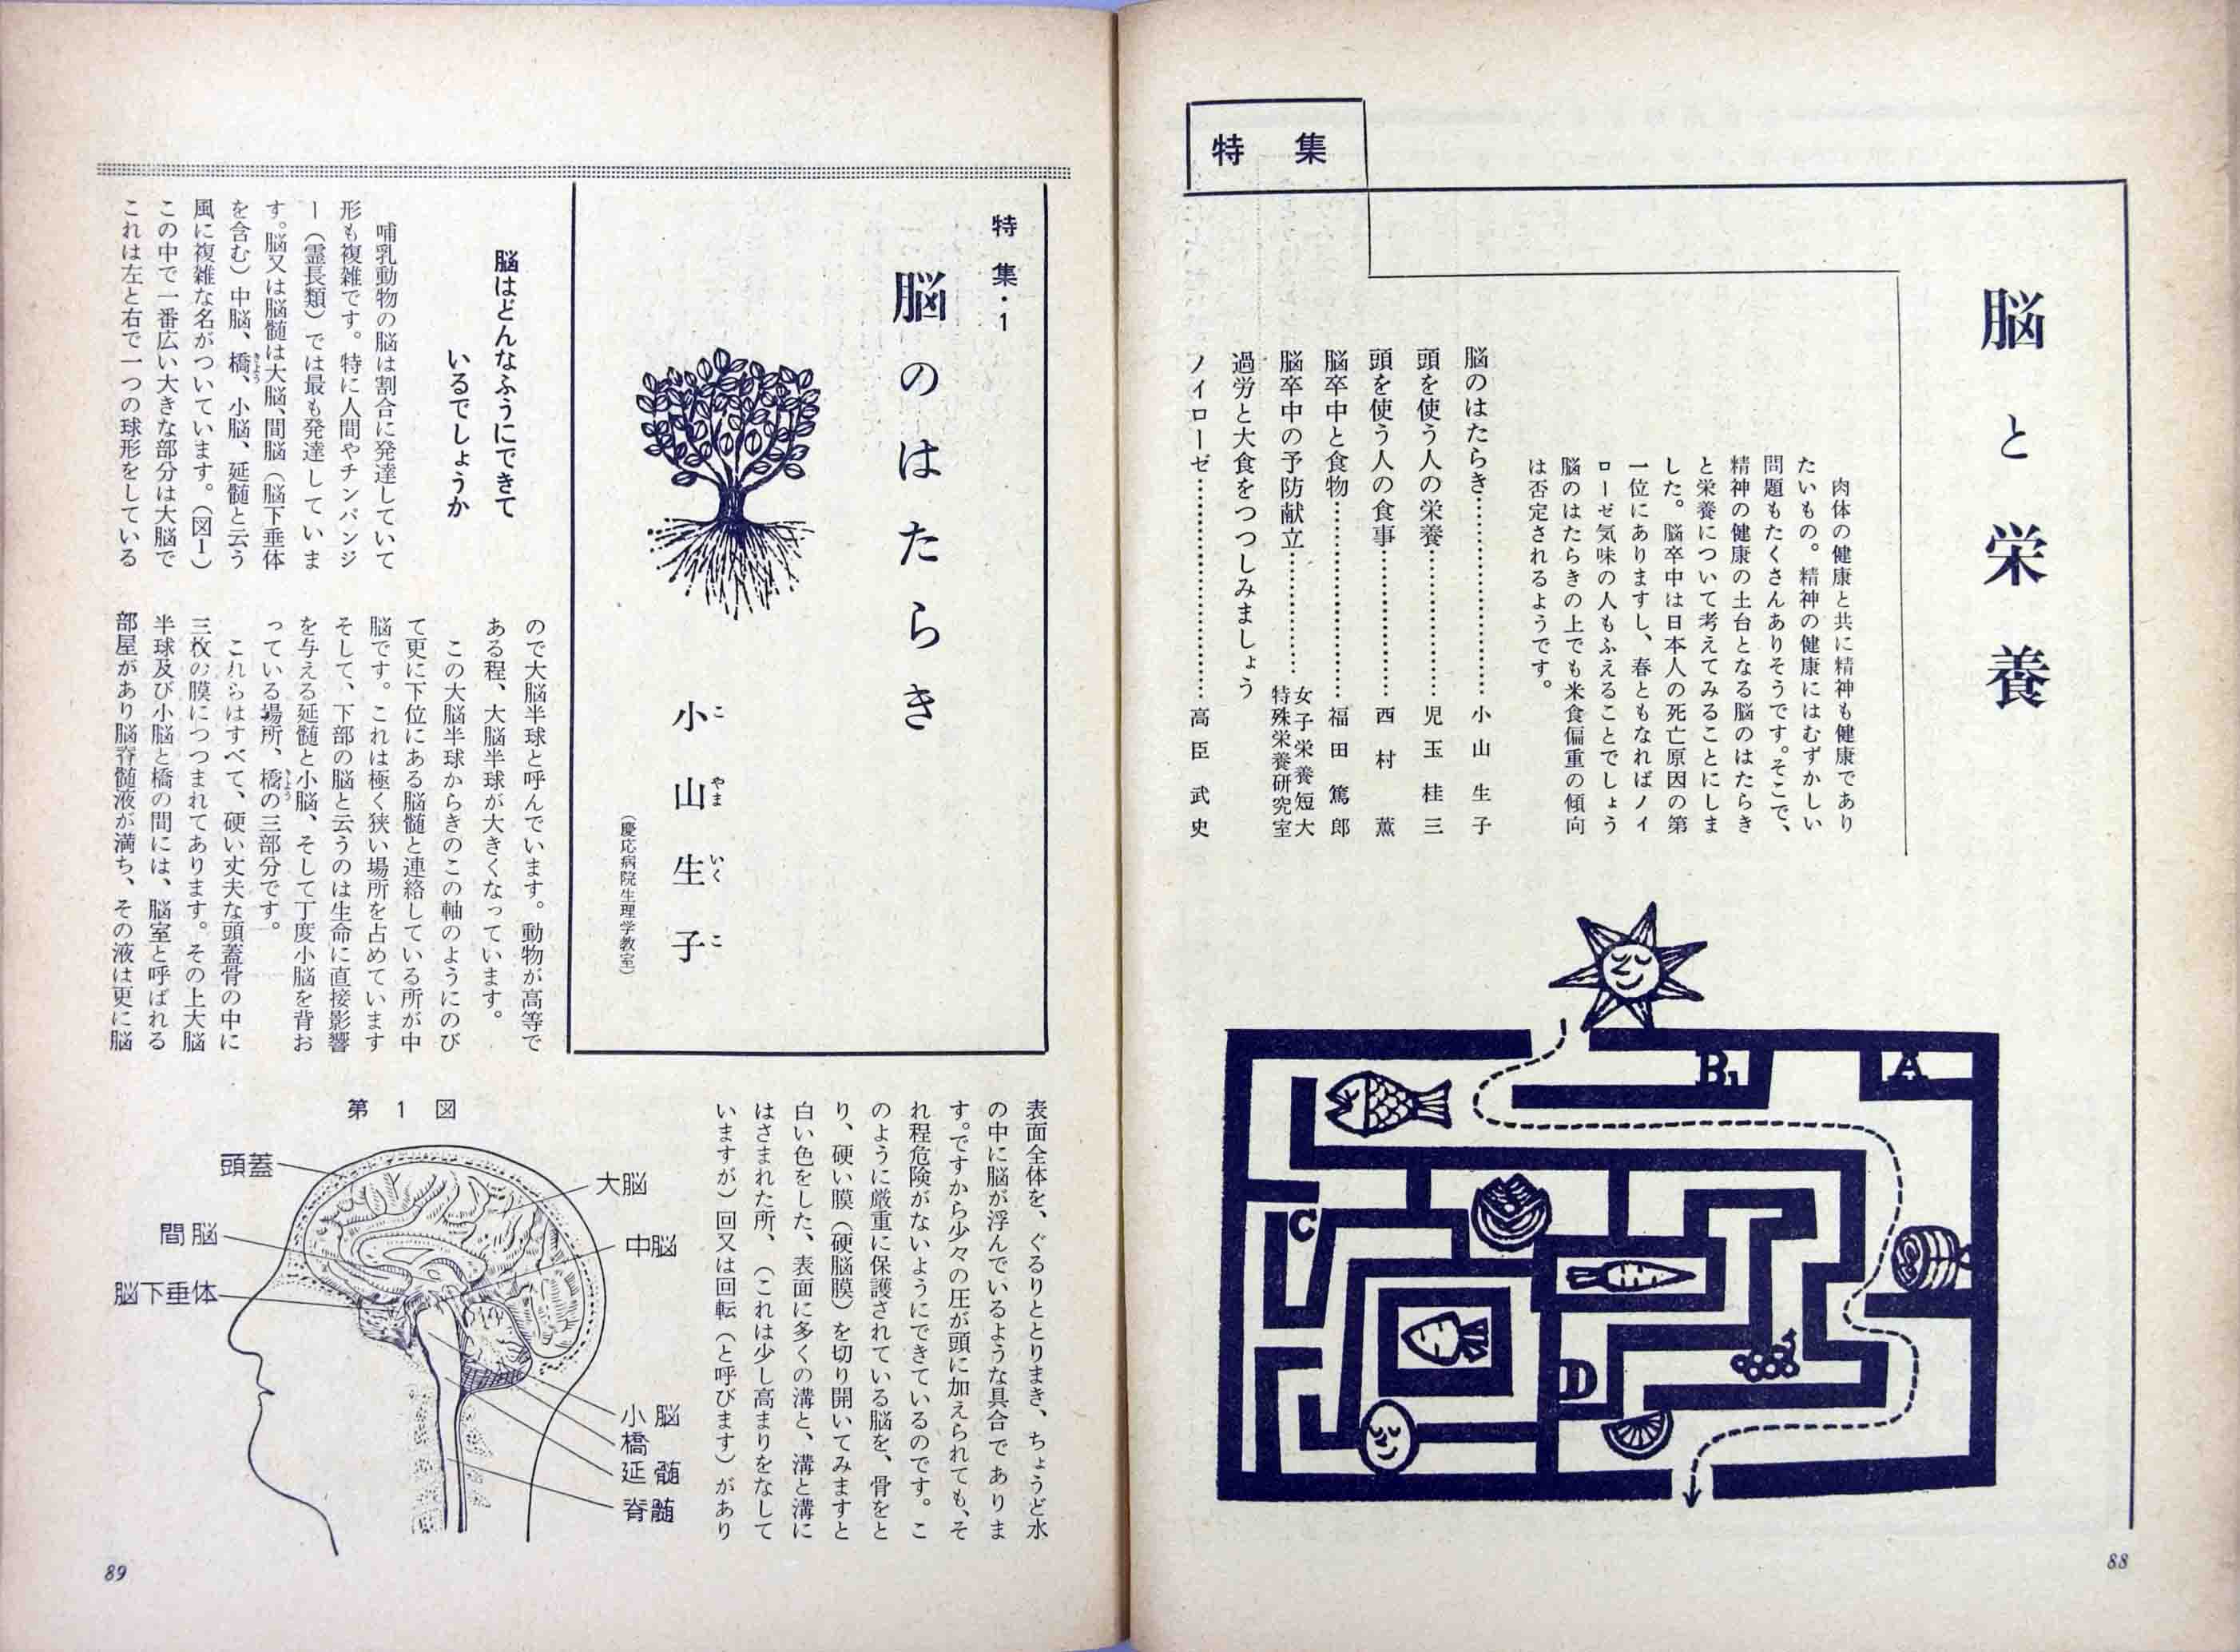 特集
脳と栄養
肉体の健康と共に精神も健康であり
たいもの。精神の健康にはむずかしい
問題もたくさんありそうです。そこで、
精神の健康の土台となる脳のはたらき
と栄養について考えてみることにしま
した。脳卒中は日本人の死亡原因の第
一位にありますし、春ともなればノイ
ローゼ気味の人もふえることでしょう
脳のはたらきの上でも米食偏重の傾向
は否定されるようです。
脳のはたらき……………………小山生子
頭を使う人の栄養………………児玉桂三
頭を使う人の食事………………西村薫
脳卒中と食物……………………福田篤郎
脳卒中の予防献立…………女子栄養短大
特殊栄養研究室
過労と大食をつつしみましょう
ノイローゼ………………………高臣武史
A
B1
C
D
88
特集・1
脳のはたらき
小山生子
こやまいくこ
(慶応病院生理学教室)
脳はどんなふうにできて
いるでしょうか
哺乳動物の脳は割合に発達していて
形も複雑です。特に人間やチンパンジ
ー(霊長類)では最も発達していま
す。脳又は脳髄は大脳、間脳(脳下垂体
を含む)中脳、橋、小脳、延髄と云う
きょう
風に複雑な名がついています。(図1)
この中で一番広い大きな部分は大脳で
これは左と右で一つの球形をしている
ので大脳半球と呼んでいます。動物が高等で
ある程、大脳半球が大きくなっています。
この大脳半球からきのこの軸のようにのび
て更に下位にある脳髄と連絡している所が中
脳です。これは極く狭い場所を占めています
そして、下部の脳と云うのは生命に直接影響
を与える延髄と小脳、そして丁度小脳を背お
っている場所、橋の三部分です。
きょう
これらはすべて、硬い丈夫な頭蓋骨の中に
三枚の膜につつまれてあります。その上大脳
半球及び小脳と橋の間には、脳室と呼ばれる
部屋があり脳脊髄液が満ち、その液は更に脳
表面全体を、ぐるりととりまき、ちょうど水
の中に脳が浮んでいるような具合でありま
す。ですから少々の圧が頭に加えられても、そ
れ程危険がないようにできているのです。こ
のように厳重に保護されている脳を、骨をと
り、硬い膜(硬脳膜)を切り開いてみますと
白い色をした、表面に多くの溝と、溝と溝に
はさまれた所、(これは少し高まりをなして
いますが)回又は回転(と呼びます)があり
第1図
頭蓋
間脳
脳下垂体
大脳
中脳
小脳
橋
延髄
脊髄
89